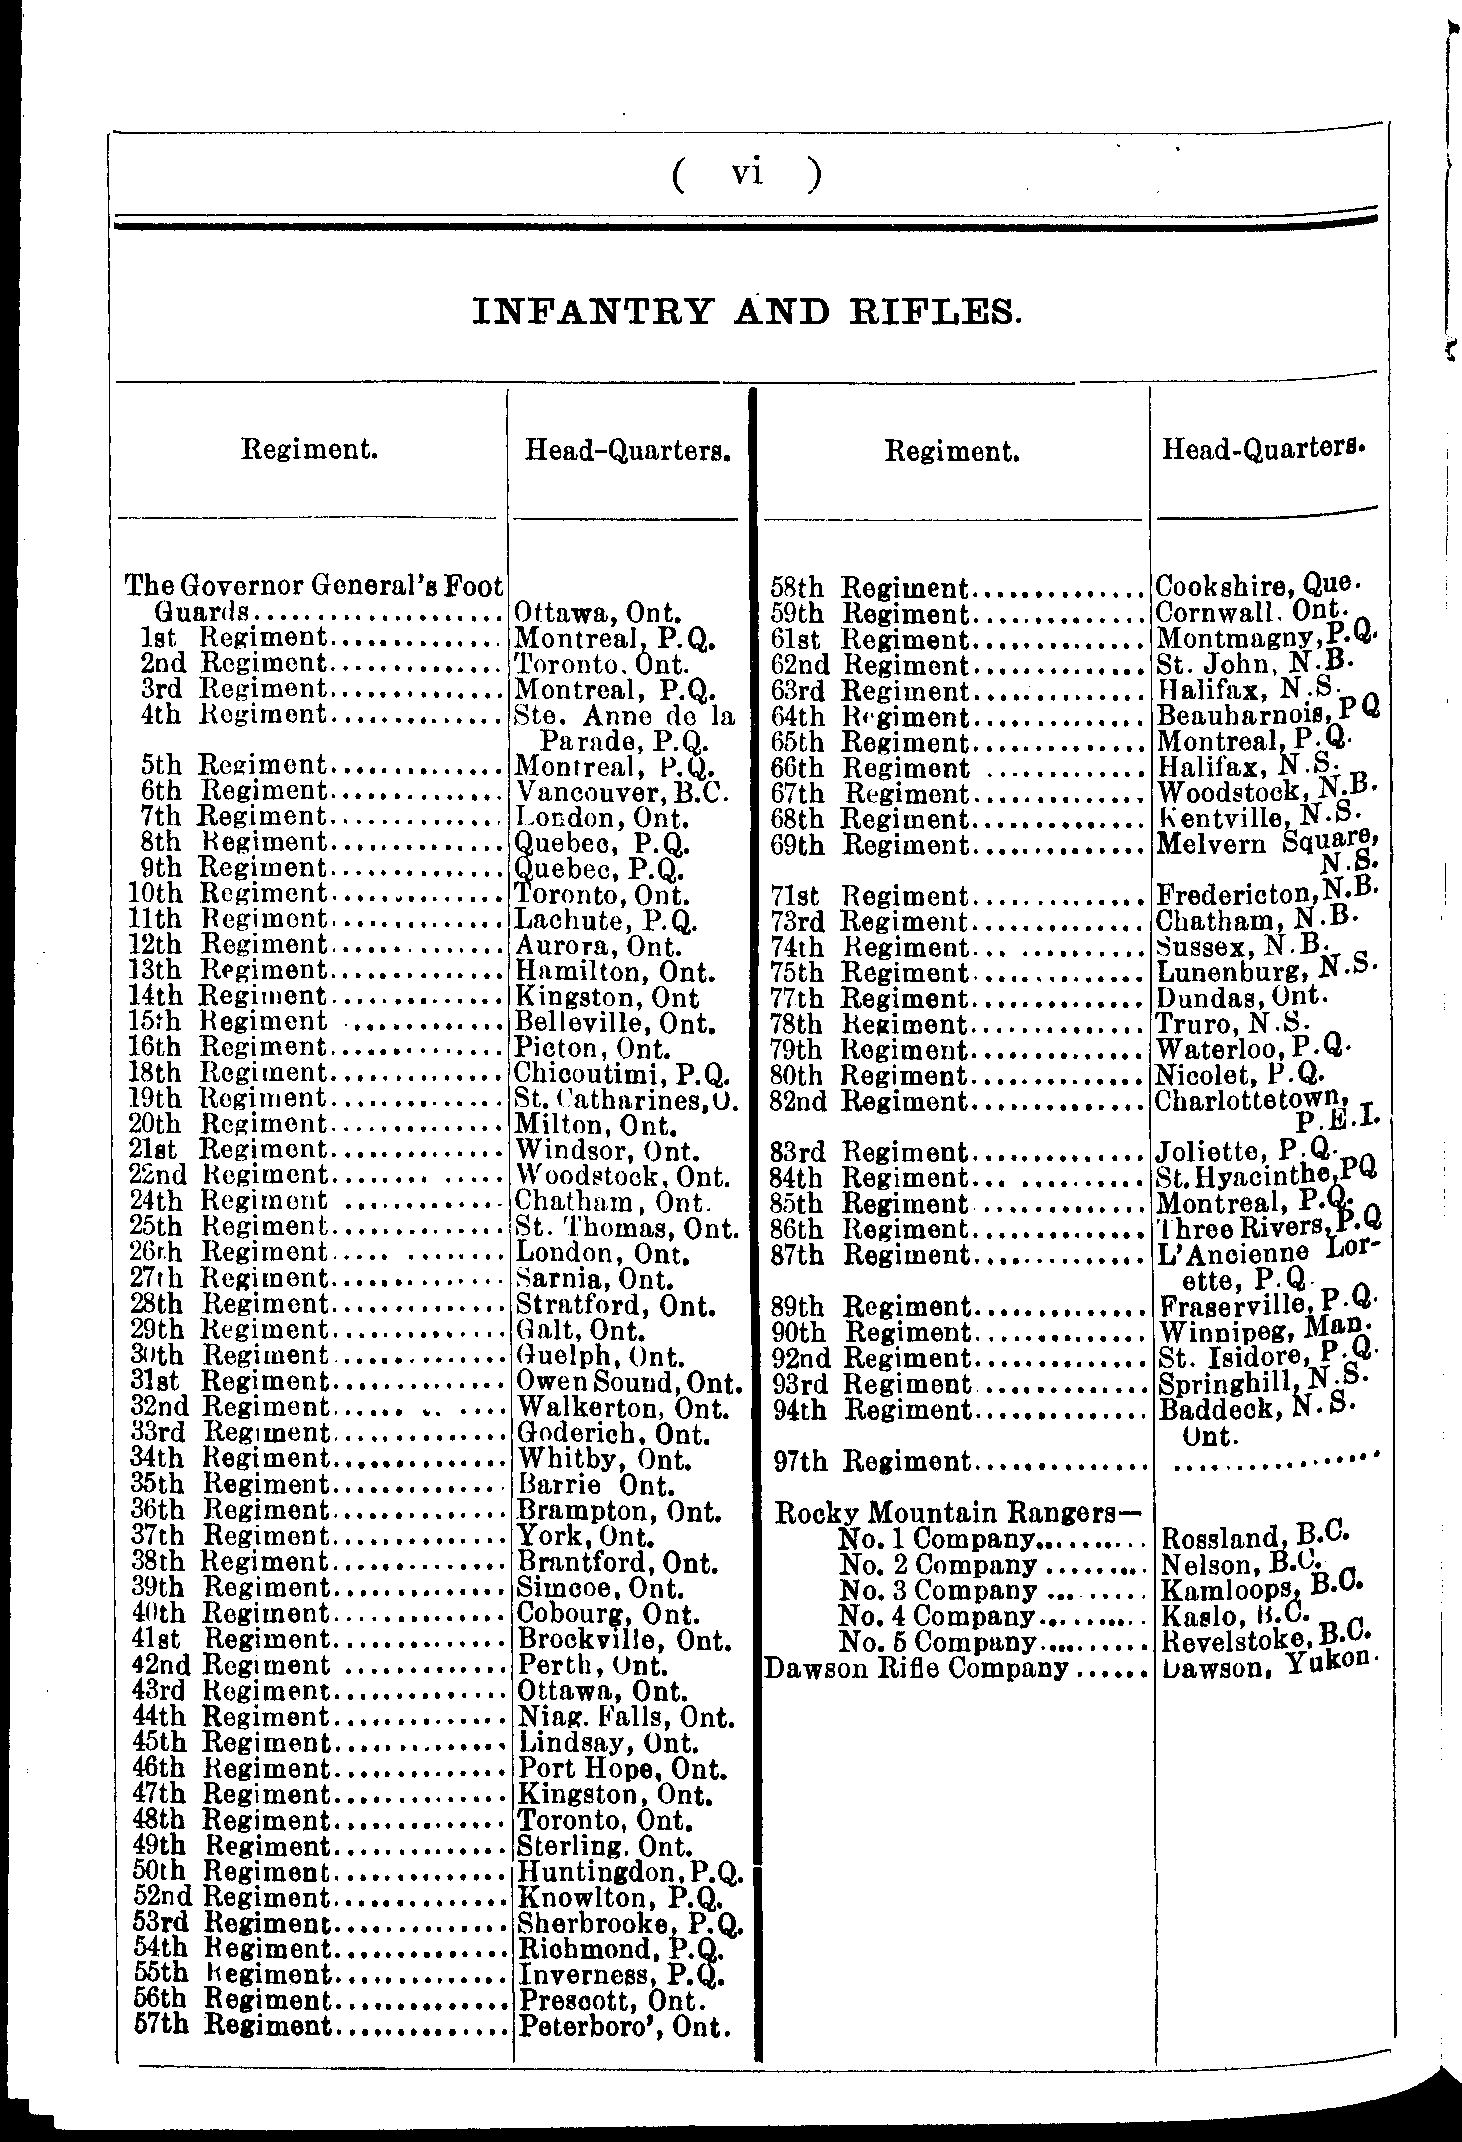 ( vi )
INFANTRY AND RIFLES.
Regiment. Head-Quarters.
The Governor General's Foot
Guards.................... Ottawa, Ont.
1st Regiment.............. Montreal, P.Q.
2nd Regiment.............. Toronto. Ont.
3rd Regiment.............. Montreal, P.Q.
4th Regiment.............. Ste. Anne de la
Parade, P.Q.
5th Regiment.............. Montreal, P.Q.
6th Regiment.............. Vancouver, B.C.
7th Regiment.............. London, Ont.
8th Regiment.............. Quebec, P.Q.
9th Regiment.............. Quebec, P.Q.
10th Regiment.............. Toronto, Ont.
11th Regiment.............. Lachute, P.Q.
12th Regiment.............. Aurora, Ont.
13th Regiment.............. Hamilton, Ont.
14th Regiment.............. Kingston, Ont
15th Regiment ............. Belleville, Ont.
16th Regiment.............. Picton, Ont.
18th Regiment.............. Chicoutimi, P.Q.
19th Regiment.............. St. Catharines, O.
20th Regiment.............. Milton, Ont.
21st Regiment.............. Windsor, Ont.
22nd Regiment........ ..... Woodstock, Ont.
24th Regiment ............. Chatham, Ont.
25th Regiment.............. St. Thomas, Ont.
26th Regiment..... ........ London, Ont.
27th Regiment.............. Sarnia, Ont.
28th Regiment.............. Stratford, Ont.
29th Regiment.............. Galt, Ont.
30th Regiment.............. Guelph, Ont.
31st Regiment.............. Owen Sound, Ont.
32nd Regiment...... .. .... Walkerton, Ont.
33rd Regiment.............. Goderich, Ont.
34th Regiment.............. Whitby, Ont.
35th Regiment.............. Barrie Ont.
36th Regiment.............. Brampton, Ont.
37th Regiment.............. York, Ont.
38th Regiment.............. Brantford, Ont.
39th Regiment.............. Simcoe, Ont.
40th Regiment.............. Cobourg, Ont.
41st Regiment.............. Brockville, Ont.
42nd Regiment ............. Perth, Ont.
43rd Regiment.............. Ottawa, Ont.
44th Regiment.............. Niag. Falls, Ont.
45th Regiment.............. Lindsay, Ont.
46th Regiment.............. Port Hope, Ont.
47th Regiment.............. Kingston, Ont.
48th Regiment.............. Toronto, Ont.
49th Regiment.............. Sterling. Ont.
50th Regiment.............. Huntingdon, P.Q.
52nd Regiment.............. Knowlton, P.Q.
53rd Regiment.............. Sherbrooke, P.Q.
54th Regiment.............. Richmond, P.Q.
55th Regiment.............. Inverness, P.Q.
56th Regiment.............. Prescott, Ont.
57th Regiment.............. Peterboro', Ont.
Regiment. Head-Quarters.
58th Regiment.............. Cookshire, Que.
59th Regiment.............. Cornwall. Ont.
61st Regiment.............. Montmagny, P.Q.
62nd Regiment.............. St. John, N.B.
63rd Regiment.............. Halifax, N.S.
64th Regiment.............. Beauharnois, P Q
65th Regiment.............. Montreal, P.Q.
66th Regiment ............. Halifax, N.S.
67th Regiment.............. Woodstock, N.B.
68th Regiment.............. Kentville, N.S.
69th Regiment.............. Melvern Square,
N.S.
71st Regiment.............. Fredericton, N.B.
73rd Regiment.............. Chatham, N.B.
74th Regiment... .......... Sussex, N.B.
75th Regiment.............. Lunenburg, N.S.
77th Regiment.............. Dundas, Ont.
78th Regiment.............. Truro, N.S.
79th Regiment.............. Waterloo, P.Q.
80th Regiment.............. Nicolet, P.Q.
82nd Regiment.............. Charlottetown,
P.E.I.
83rd Regiment.............. Joliette, P.Q.
84th Regiment... .......... St. Hyacinthe, PQ
85th Regiment.............. Montreal, P.Q.
86th Regiment.............. Three Rivers, P.Q
87th Regiment.............. L'Ancienne Lor-
ette, P.Q.
89th Regiment.............. Fraserville, P.Q.
90th Regiment.............. Winnipeg, Man.
92nd Regiment.............. St. Isidore, P.Q.
93rd Regiment.............. Springhill, N.S.
94th Regiment.............. Baddeck, N.S.
Ont.
97th Regiment.............. .................
Rocky Mountain Rangers—
No. 1 Company.......... Rossland, B.C.
No. 2 Company ......... Nelson, B.C.
No. 3 Company ......... Kamloops, B.C.
No. 4 Company.......... Kaslo, B.C.
No. 5 Company.......... Revelstoke, B.C.
Dawson Rifle Company ...... Dawson, Yukon.